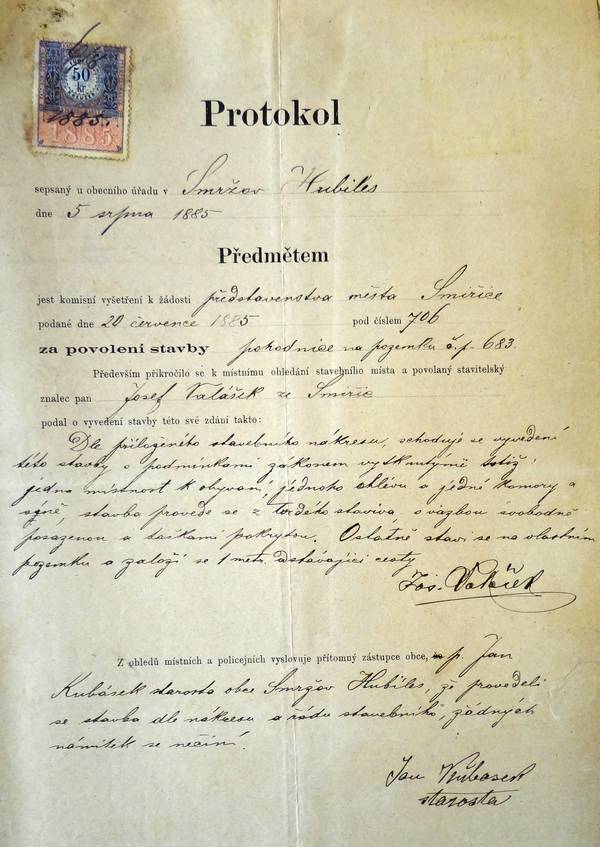 50
kr
1885.
1885
Protokol
sepsaný u obecního úřadu v Smržov Hubiles
dne 5 srpna 1885
Předmětem
jest komisní vyšetření k žádosti představenstva města Smiřice
podané dne 20 července 1885 pod číslem 706
za povolení stavby pohodnice na pozemku č.p. 683.
Především přikročilo se k místnímu ohledání stavebního místa a povolaný stavitelský
znalec pan Josef Valášek ze Smiřic
podal o vyvedení stavby této své zdání takto:
Dle přiloženého stavebního nákresu, schoduje se vyvedení
této stavby s podmínkami zákonem vytknutýmě totiž:
jedna místnost k obývaní, jednoho chlévu a jedné komory a
stavba provede se z tvrdeho staviva s vazbou svobodně
posazenou a taškami pokrytou. Ostatně stavi se na vlastním
pozemku a založí se 1 metr. od stávající cesty
Jos. Valášek
Z ohledů místních a policejních vyslovuje přítomný zástupce obce, p. Jan
Kubásek starosta obce Smržov Hubiles, že provedeli
se stavba dle nákresu a řádu stavebního, žádných
námitek se nečiní.
Jan Kubasek
starosta